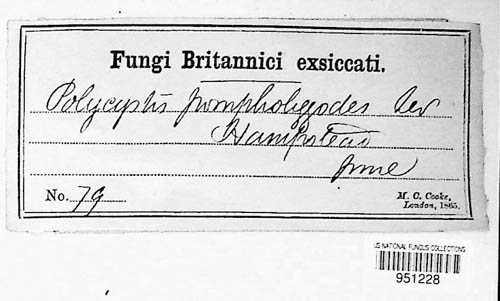 Fungi Britannici exsiccati.
Polycystis pompholygodes Lev
Hampstead
June
No. 79
M. C. Cooke,
London, 1865.
US NATIONAL FUNGUS COLLECTIONS
951228